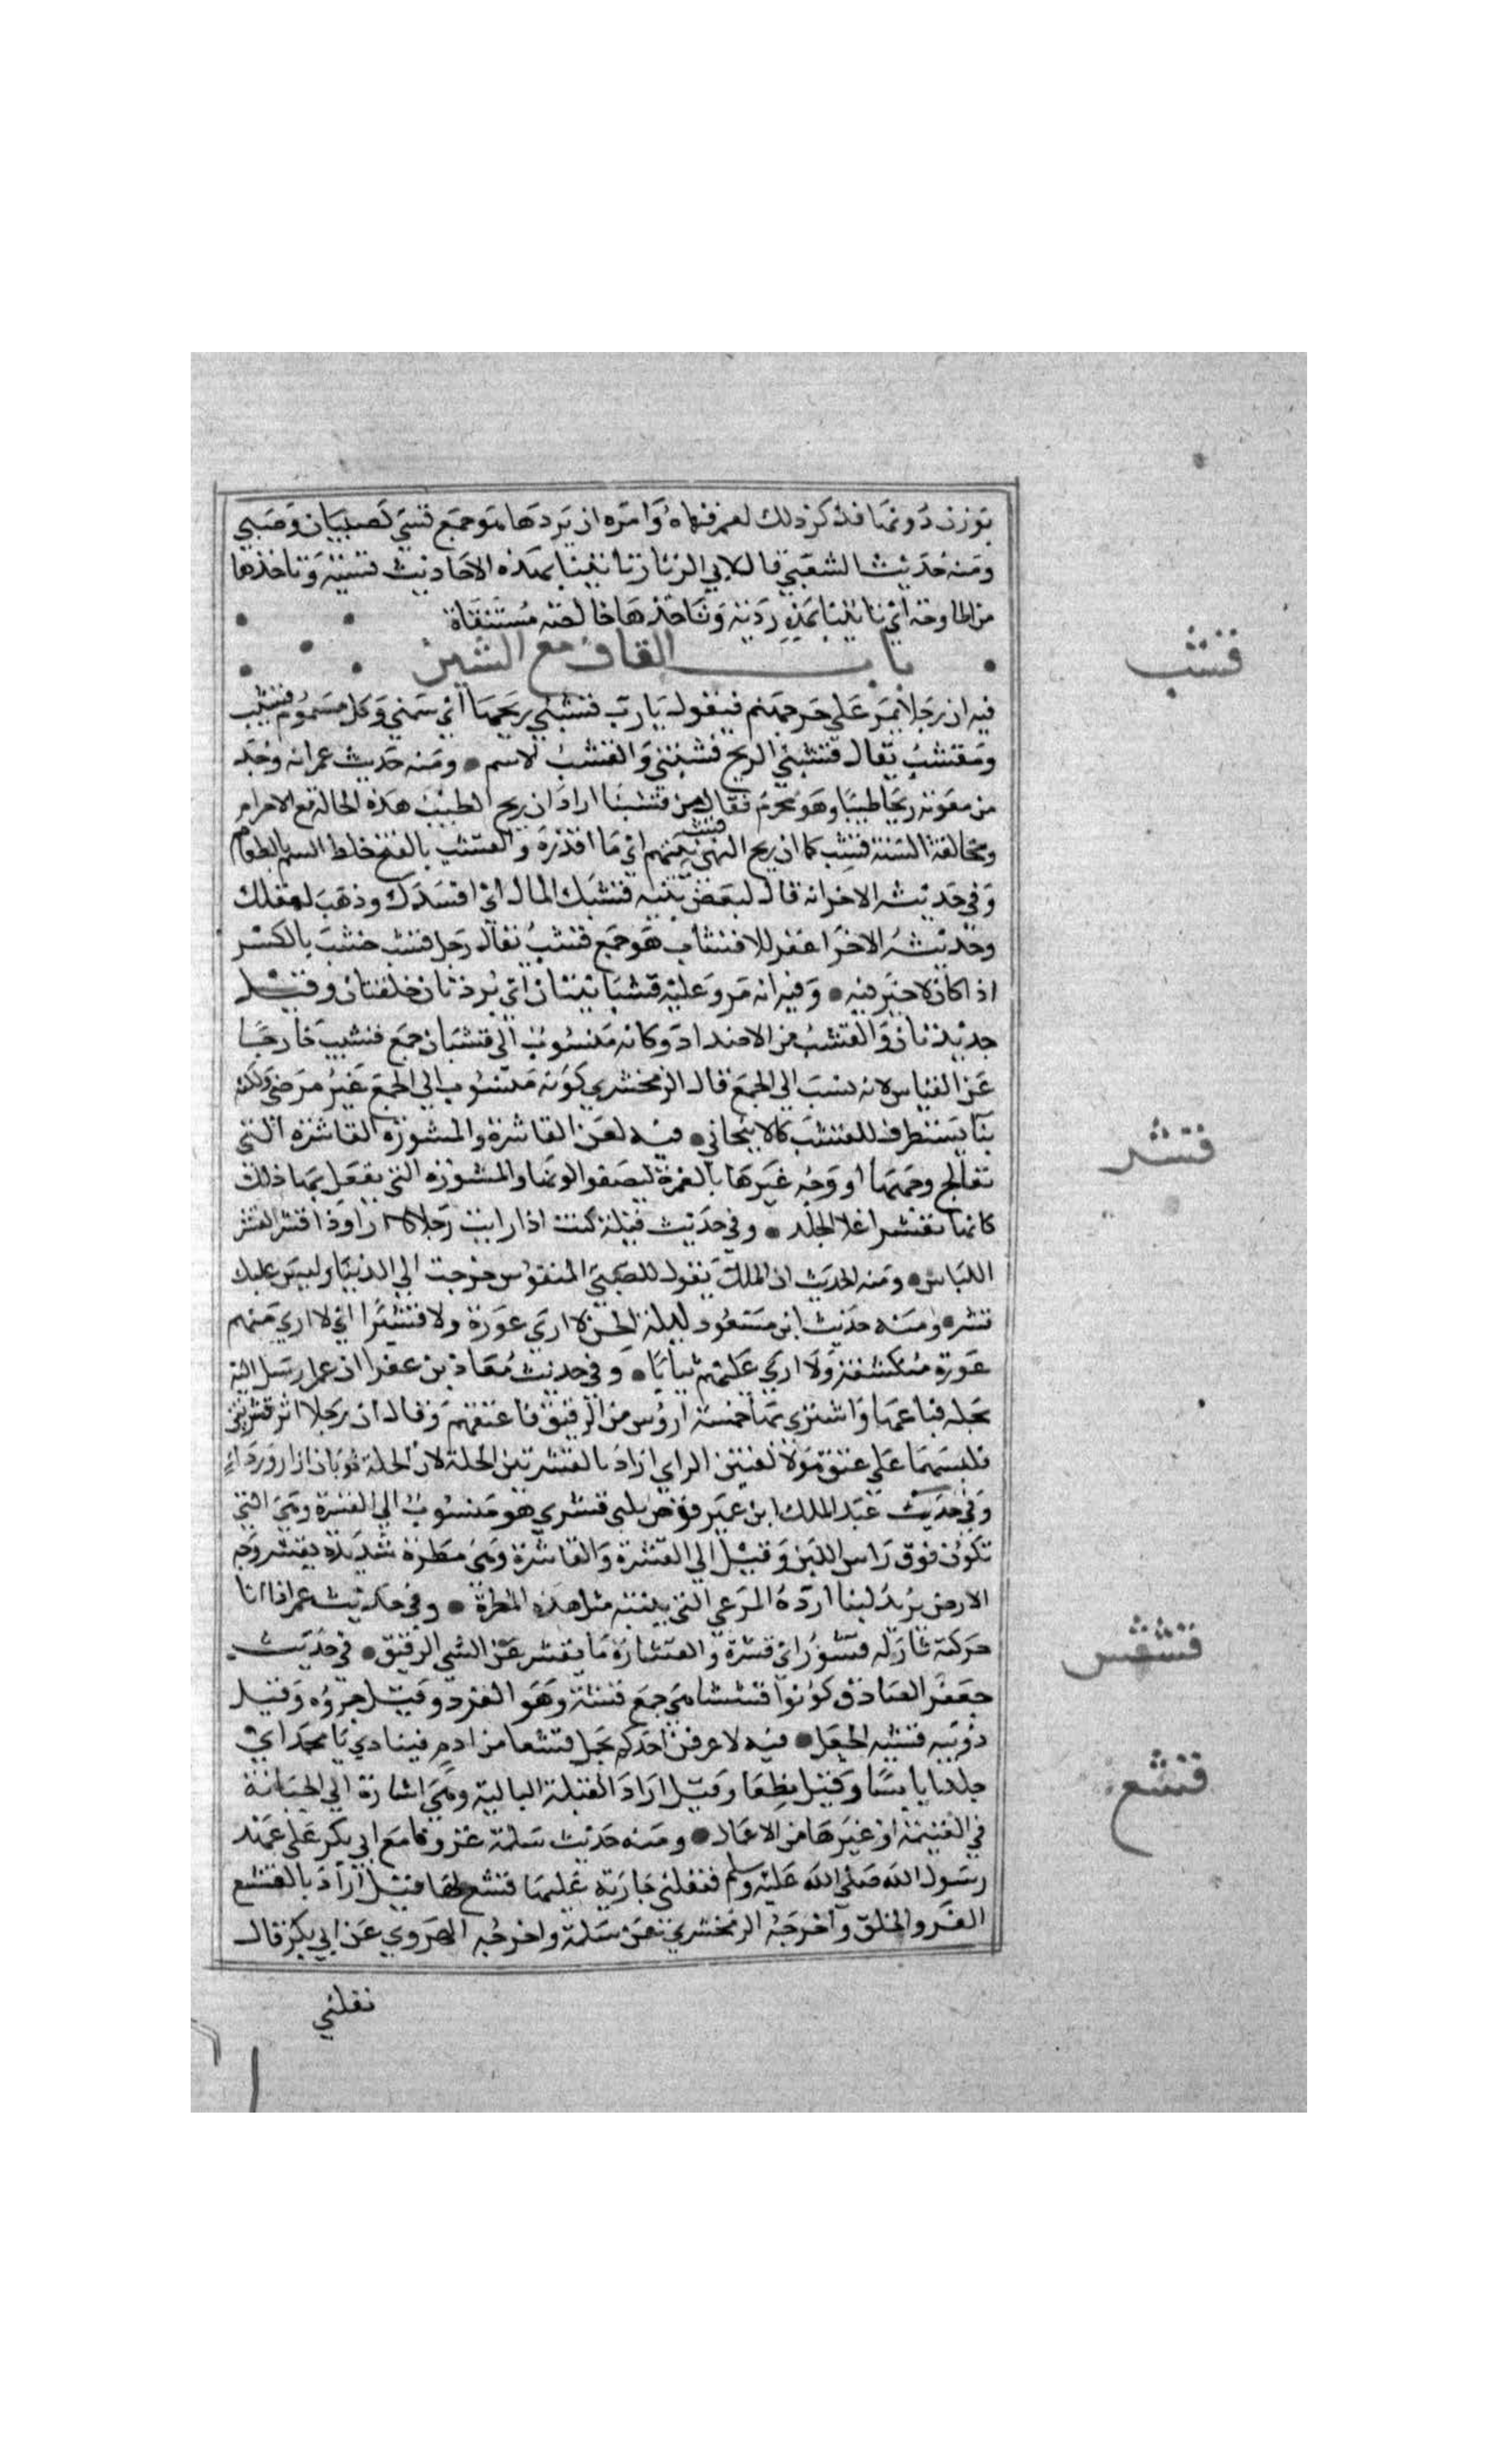 بوزن دونها فذكر ذلك لعمر فنهاه وامره ان يردها هو جمع قسي كصبيان وصبي
ومنه حديث الشعبي قال لابي الزناد تاتينا بهذه الاحاديث قسية وتاخذها
منا طازجة اي تاتينا بهذه ردية وتاخذها خالصة منتقاة
باب القاف مع الشين
قشب
فيه ان رجلا يمر على جسر جهنم فيقول يارب قشبني ريحها اي سمني وكل مسموم قشيب
ومقشب يقال قشبتني الريح وقشبتني والقشب الاسم ومنه حديث عمر انه وجد
من معوية ريحا طيبا وهو محرم فقال من قشبنا اراد ان ريح الطيب هذه الحالة مع الاحرام
ومخالفة السنة قشب كما ان ريح النتن قشب اي ما اقذره والقشب بالفتح خلط السم بالطعام
وفي حديثه الاخر انه قال لبعض بنيه قشبك المال اي افسدك وذهب بعقلك
وحديثه الاخر اغفر للاقشاب هو جمع قشب يقال رجل قشب خشب بالكسر
اذا كان لا خير فيه وفيه انه مر وعليه قشبانيتان اي بردتان خلقتان وقيل
جديدتان والقشب من الاضداد وكانه منسوب الى قشبان جمع قشيب خارجا
عن القياس لانه نسب الى الجمع قال الزمخشري كونه منسوب الى الجمع غير مرضي ولكنه
بنا يستطرف للقشب كالانبجاني فيه لعن القاشرة والمقشورة القاشرة التي
قشر
تعالج وجهها او وجه غيرها بالغمرة ليصفو لونها والمقشورة التي يفعل بها ذلك
كانها تقشر اعلا الجلد وفي حديث قيلة كنت اذا رايت رجلا ذا روا وذا قشر القشر
اللباس ومنه الحديث ان الملك يقول للصبي المنفوس خرجت الى الدنيا وليس عليك
قشر ومنه حديث ابن مسعود ليلة الجن لا ارى عورة ولا قشرا اي لا ارى منهم
عورة منكشفة ولا ارى عليهم ثيابا وفي حديث معاذ بن عفرا ان عمر ارسل اليه
بحلة فباعها واشترى بها خمسة ارؤس من الرقيق فاعتقهم وقال ان رجلا اثر قشرتين
يلبسهما على عتق هولا لغبين الراي اراد بالقشرتين الحلة لان الحلة ثوبان ازار ورداء
وفي حديث عبد الملك ابن عمير قرص بلبن قشري هو منسوب الى القشرة وهي التي
تكون فوق راس اللبن وقيل الى القشرة والقاشرة وهي مطرة شديدة يقشر وجه
الارض يريد لبنا ادره المرعى التي ينبته مثل هذه المطرة وفي حديث عمر اذا انا
حركته ثار له قشور اي قشرة والقشارة ما يقشر عن الشي الرقيق في حديث
قشش
جعفر الصادق كونوا قششا هي جمع قشة وهو القرد وقيل جروه وقيل
دويبه تشبه الجعل فيه لا عرفن احدكم يحمل قشعا من ادم فينادي يا محمد اي
قشع
جلدا يابسا وقيل نطعا وقيل اراد القبلة البالية وهي اشارة الى الخيانة
في الغنيمة او غيرها من الاعمال ومنه حديث سلمة غزونا مع ابي بكر على عهد
رسول الله صلى الله عليه وسلم فنفلني جارية عليها قشع لها قيل اراد بالقشع
الفرو الخلق واخرجه الزمخشري عن سلمة واخرجه الهروي عن ابي بكر قال
نفلني